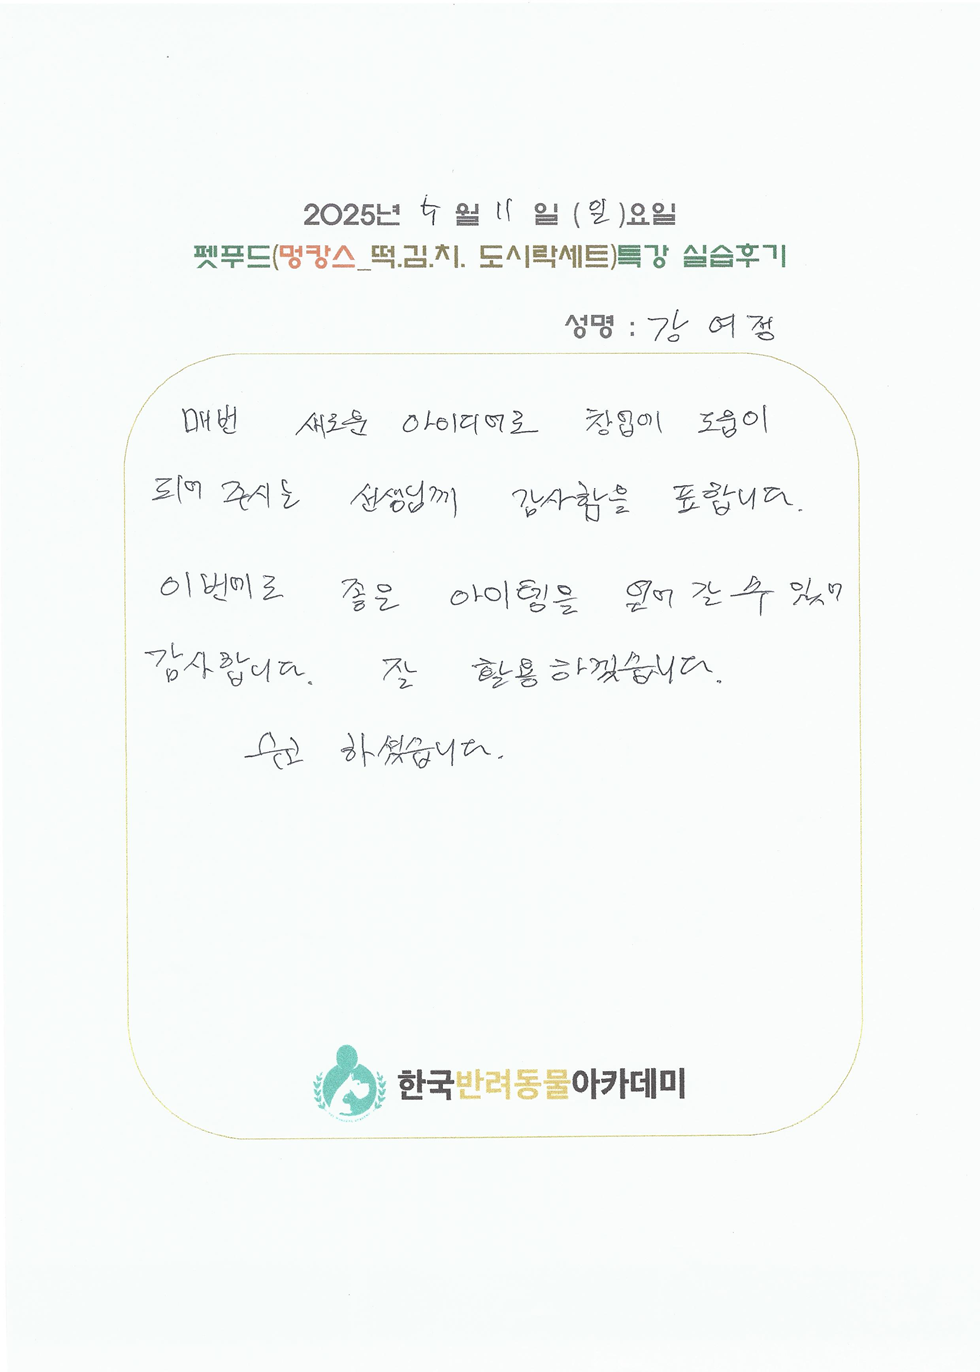 2025년 5월 11일 (일)요일
펫푸드(멍캉스_떡.김.치. 도시락세트)특강 실습후기
성명 : 강여정
매번 새로운 아이디어로 창업에 도움이
되어 주시는 선생님께 감사함을 표합니다.
이번에도 좋은 아이템을 얻어 갈 수 있어
감사합니다. 잘 활용하겠습니다.
수고 하셨습니다.
한국반려동물아카데미